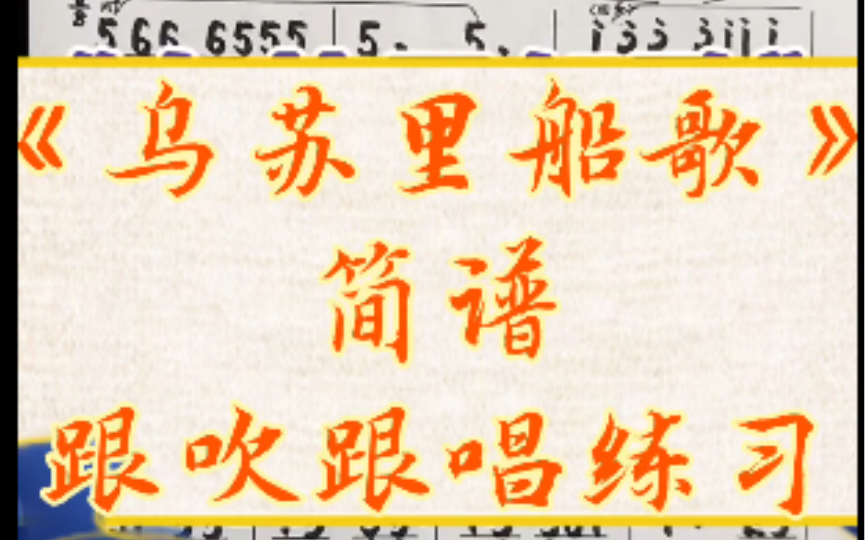 566 6555 | 5. 5. | i33 3iii
《乌苏里船歌》
简谱
跟吹跟唱练习